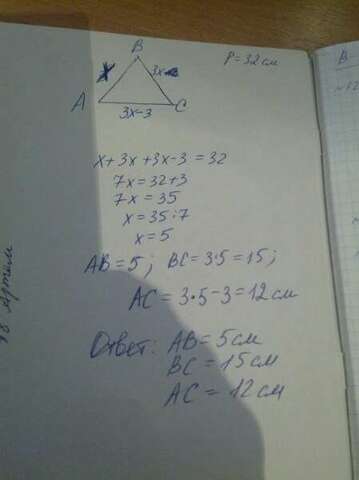 B
P=32см
x
3x
A
C
3x-3
x+3x+3x-3=32
7x=32+3
7x=35
x=35:7
x=5
AB=5; BC=3·5=15;
AC=3·5-3=12см
Ответ: AB=5см
BC=15см
AC=12см